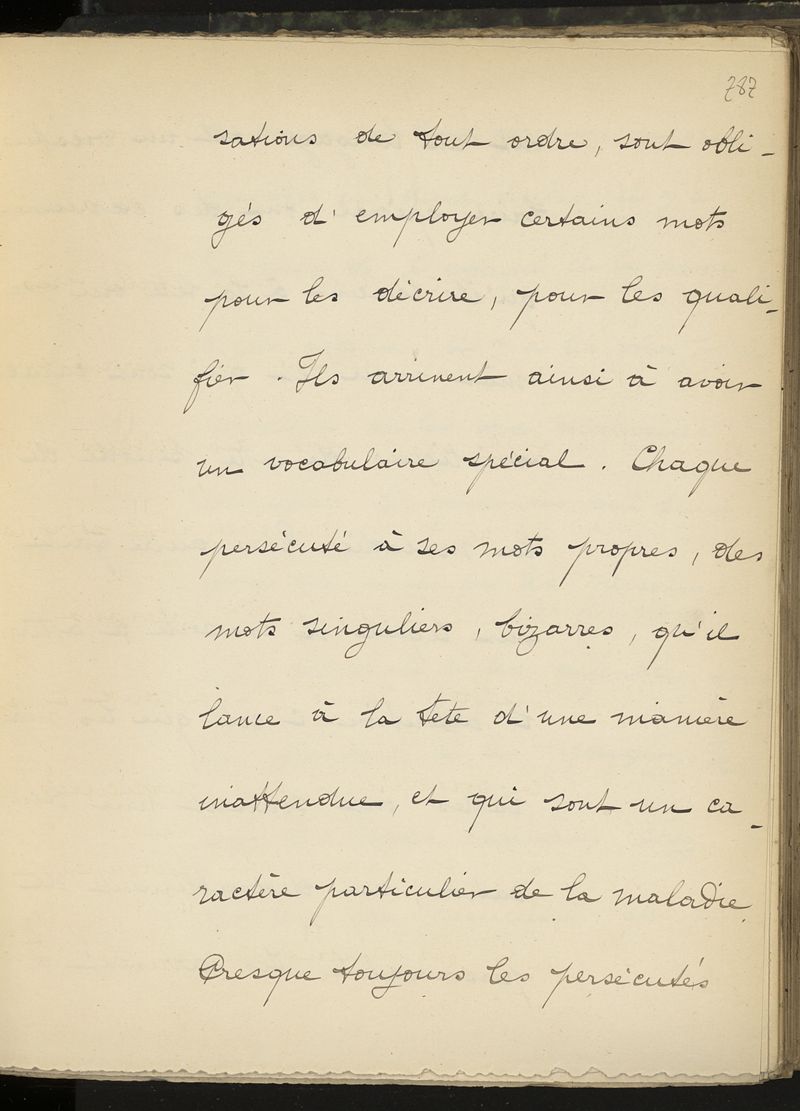 787
sations de tout ordre, sont obli-
gés d'employer certains mots
pour les décrire, pour les quali-
fier. Ils arrivent ainsi à avoir
un vocabulaire spécial. Chaque
persécuté à ses mots propres, des
mots singuliers, bizarres, qu'il
lance à la tête d'une manière
inattendue, et qui sont un ca-
ractère particulier de la maladie.
Presque toujours les persécutés